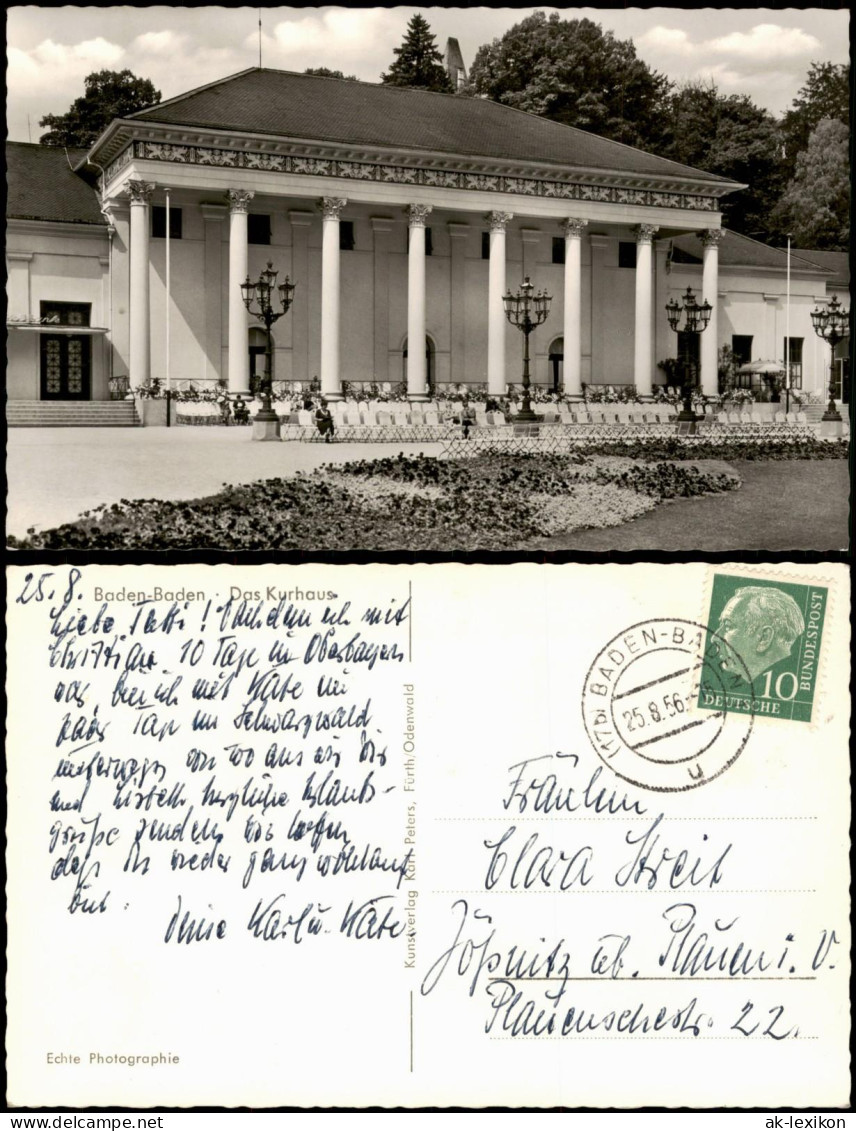 25.8. Baden-Baden · Das Kurhaus
Liebe Tatti! Nachdem ich mit
Christian 10 Tage in Oberbayern
war, bin ich mit Käte ein
paar Tage im Schwarzwald
unterwegs von wo aus wir Dir
und Lisbeth herzliche Urlaubs-
grüße senden. Wir hoffen,
daß Du wieder ganz wohlauf
bist.
Deine Karl u. Käte.
Echte Photographie
Kunstverlag Karl Peters, Fürth/Odenwald
(17b) BADEN-BADEN
25.8.56
u
10
DEUTSCHE
BUNDESPOST
Fräulein
Clara Streit
Jößnitz üb. Plauen i. V.
Plauenschestr. 22.
www.ansichtskartenversand.com
ak-lexikon